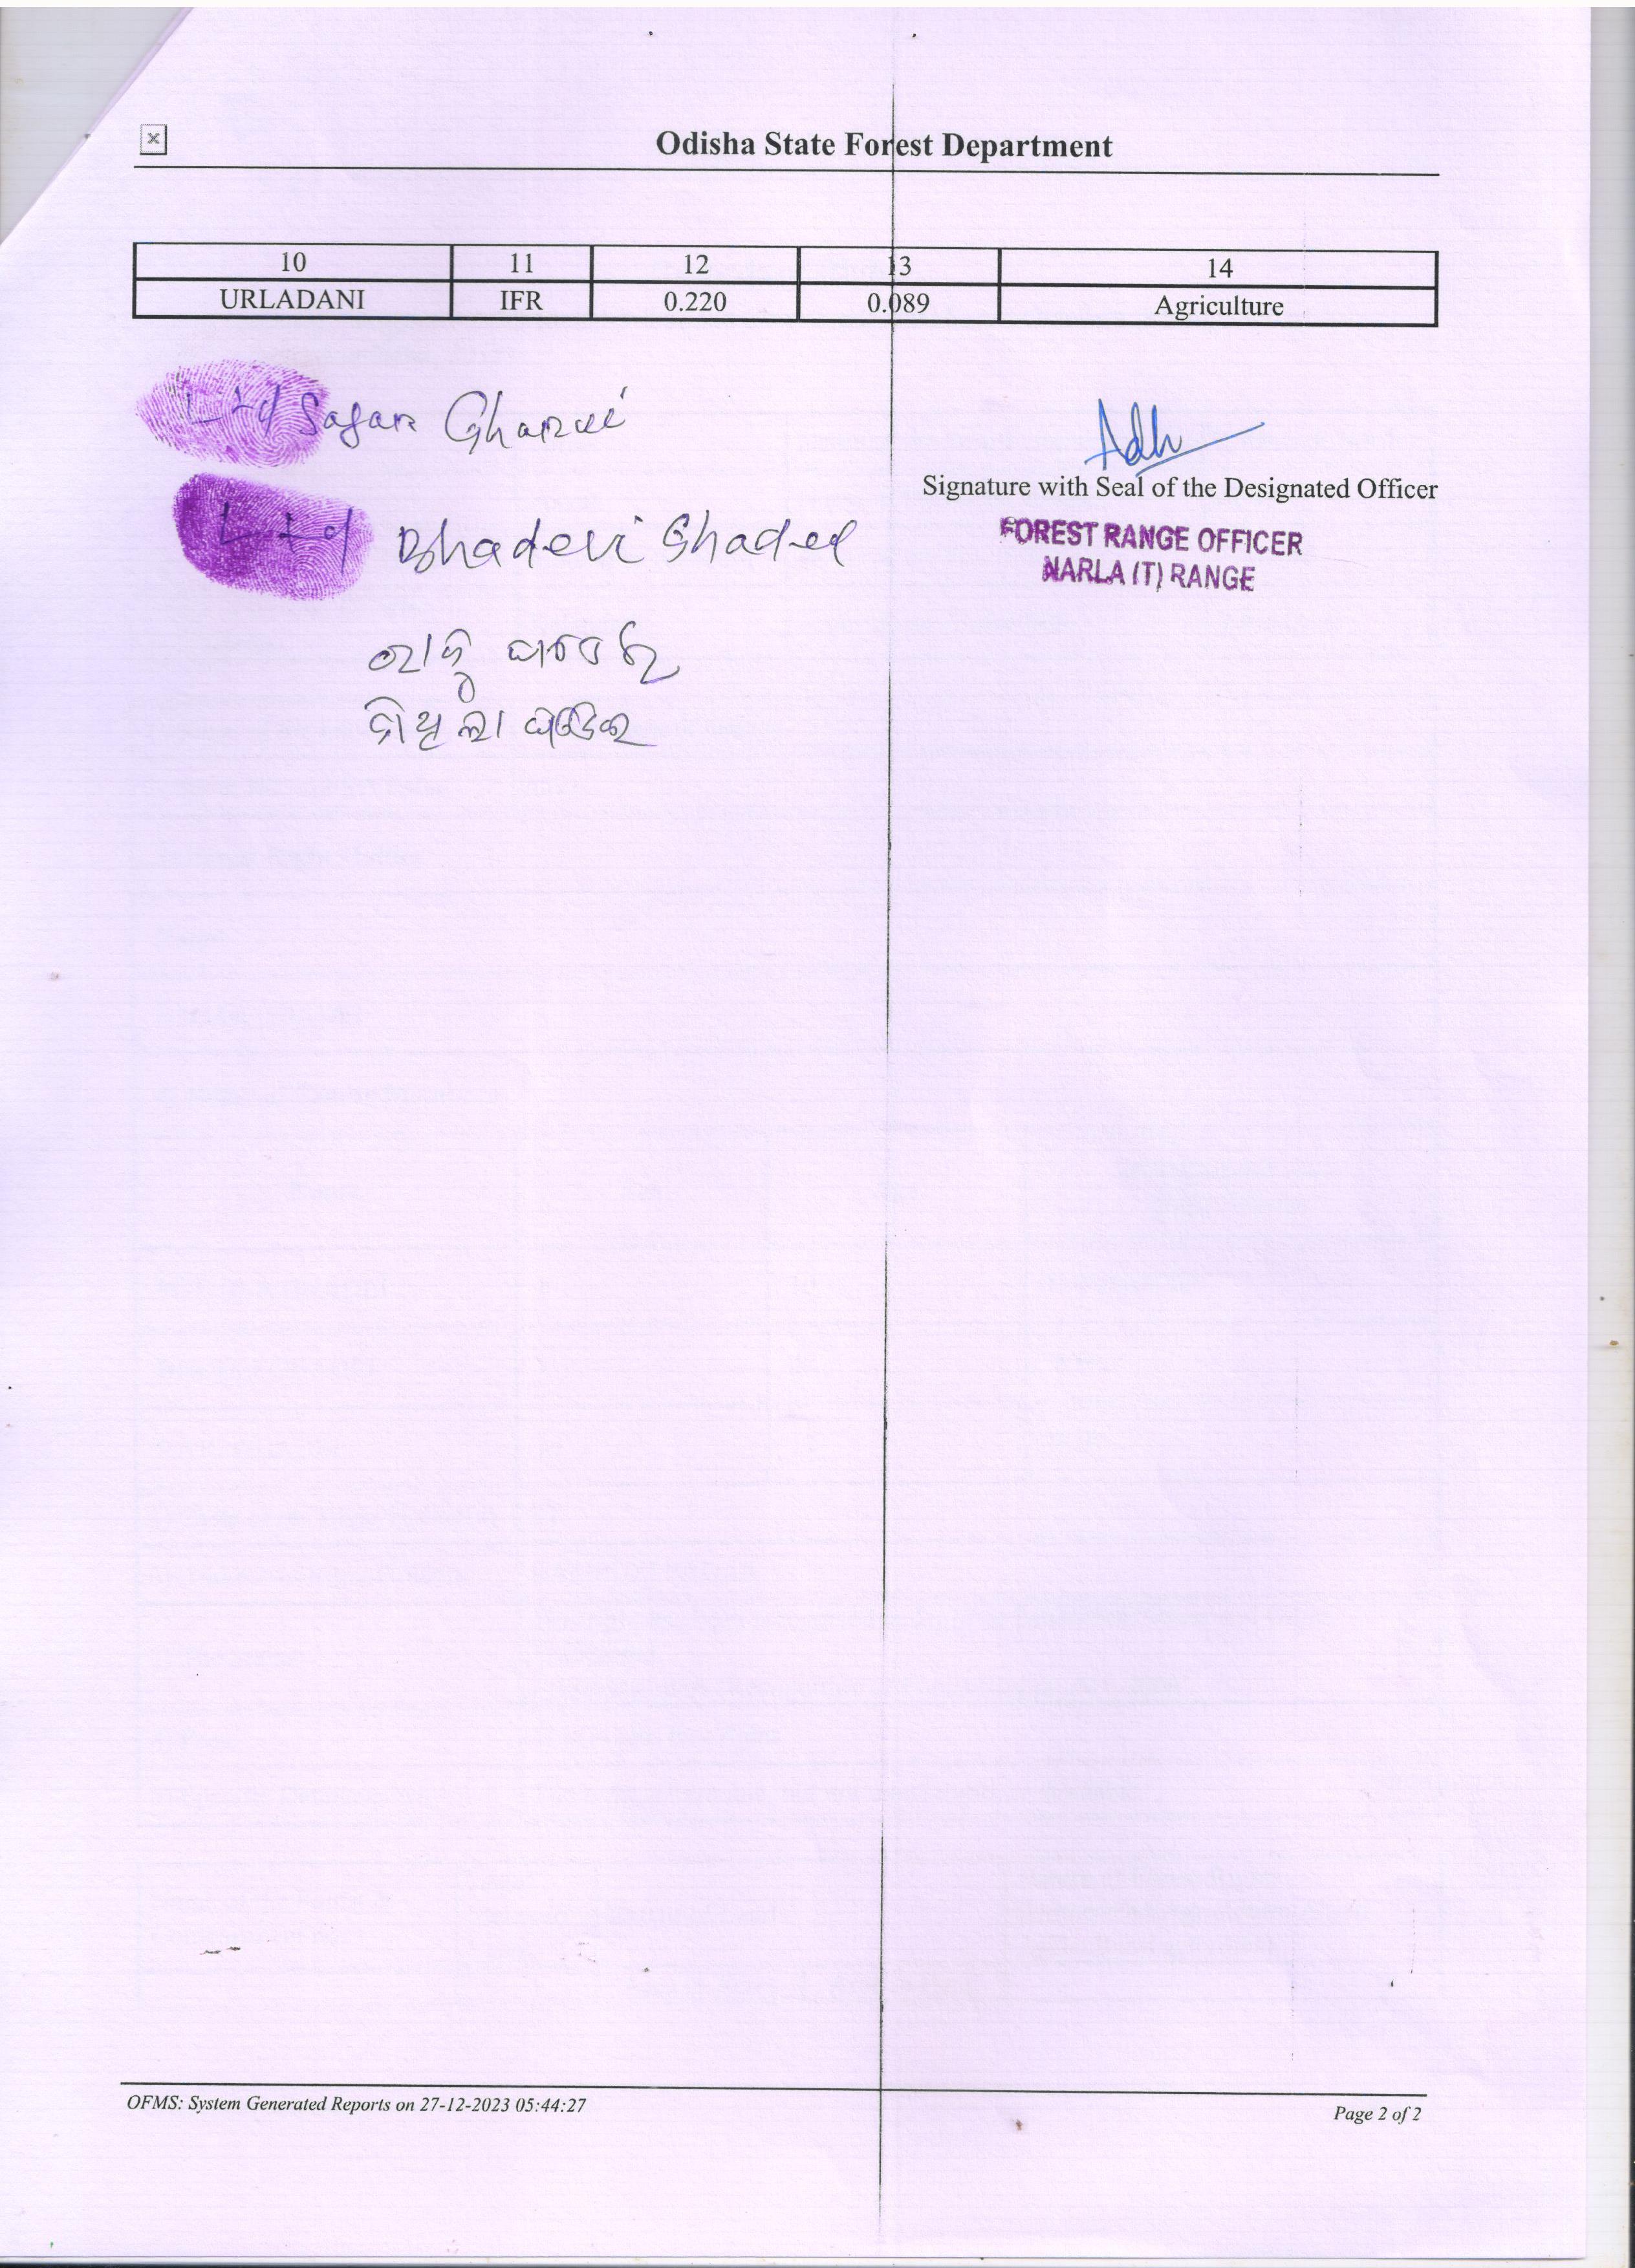 Odisha State Forest Department
10 11 12 13 14
URLADANI IFR 0.220 0.089 Agriculture
Sagar
Signature with Seal of the Designated Officer
Bhadevi
FOREST RANGE OFFICER
NARLA (T) RANGE
OFMS: System Generated Reports on 27-12-2023 05:44:27
Page 2 of 2